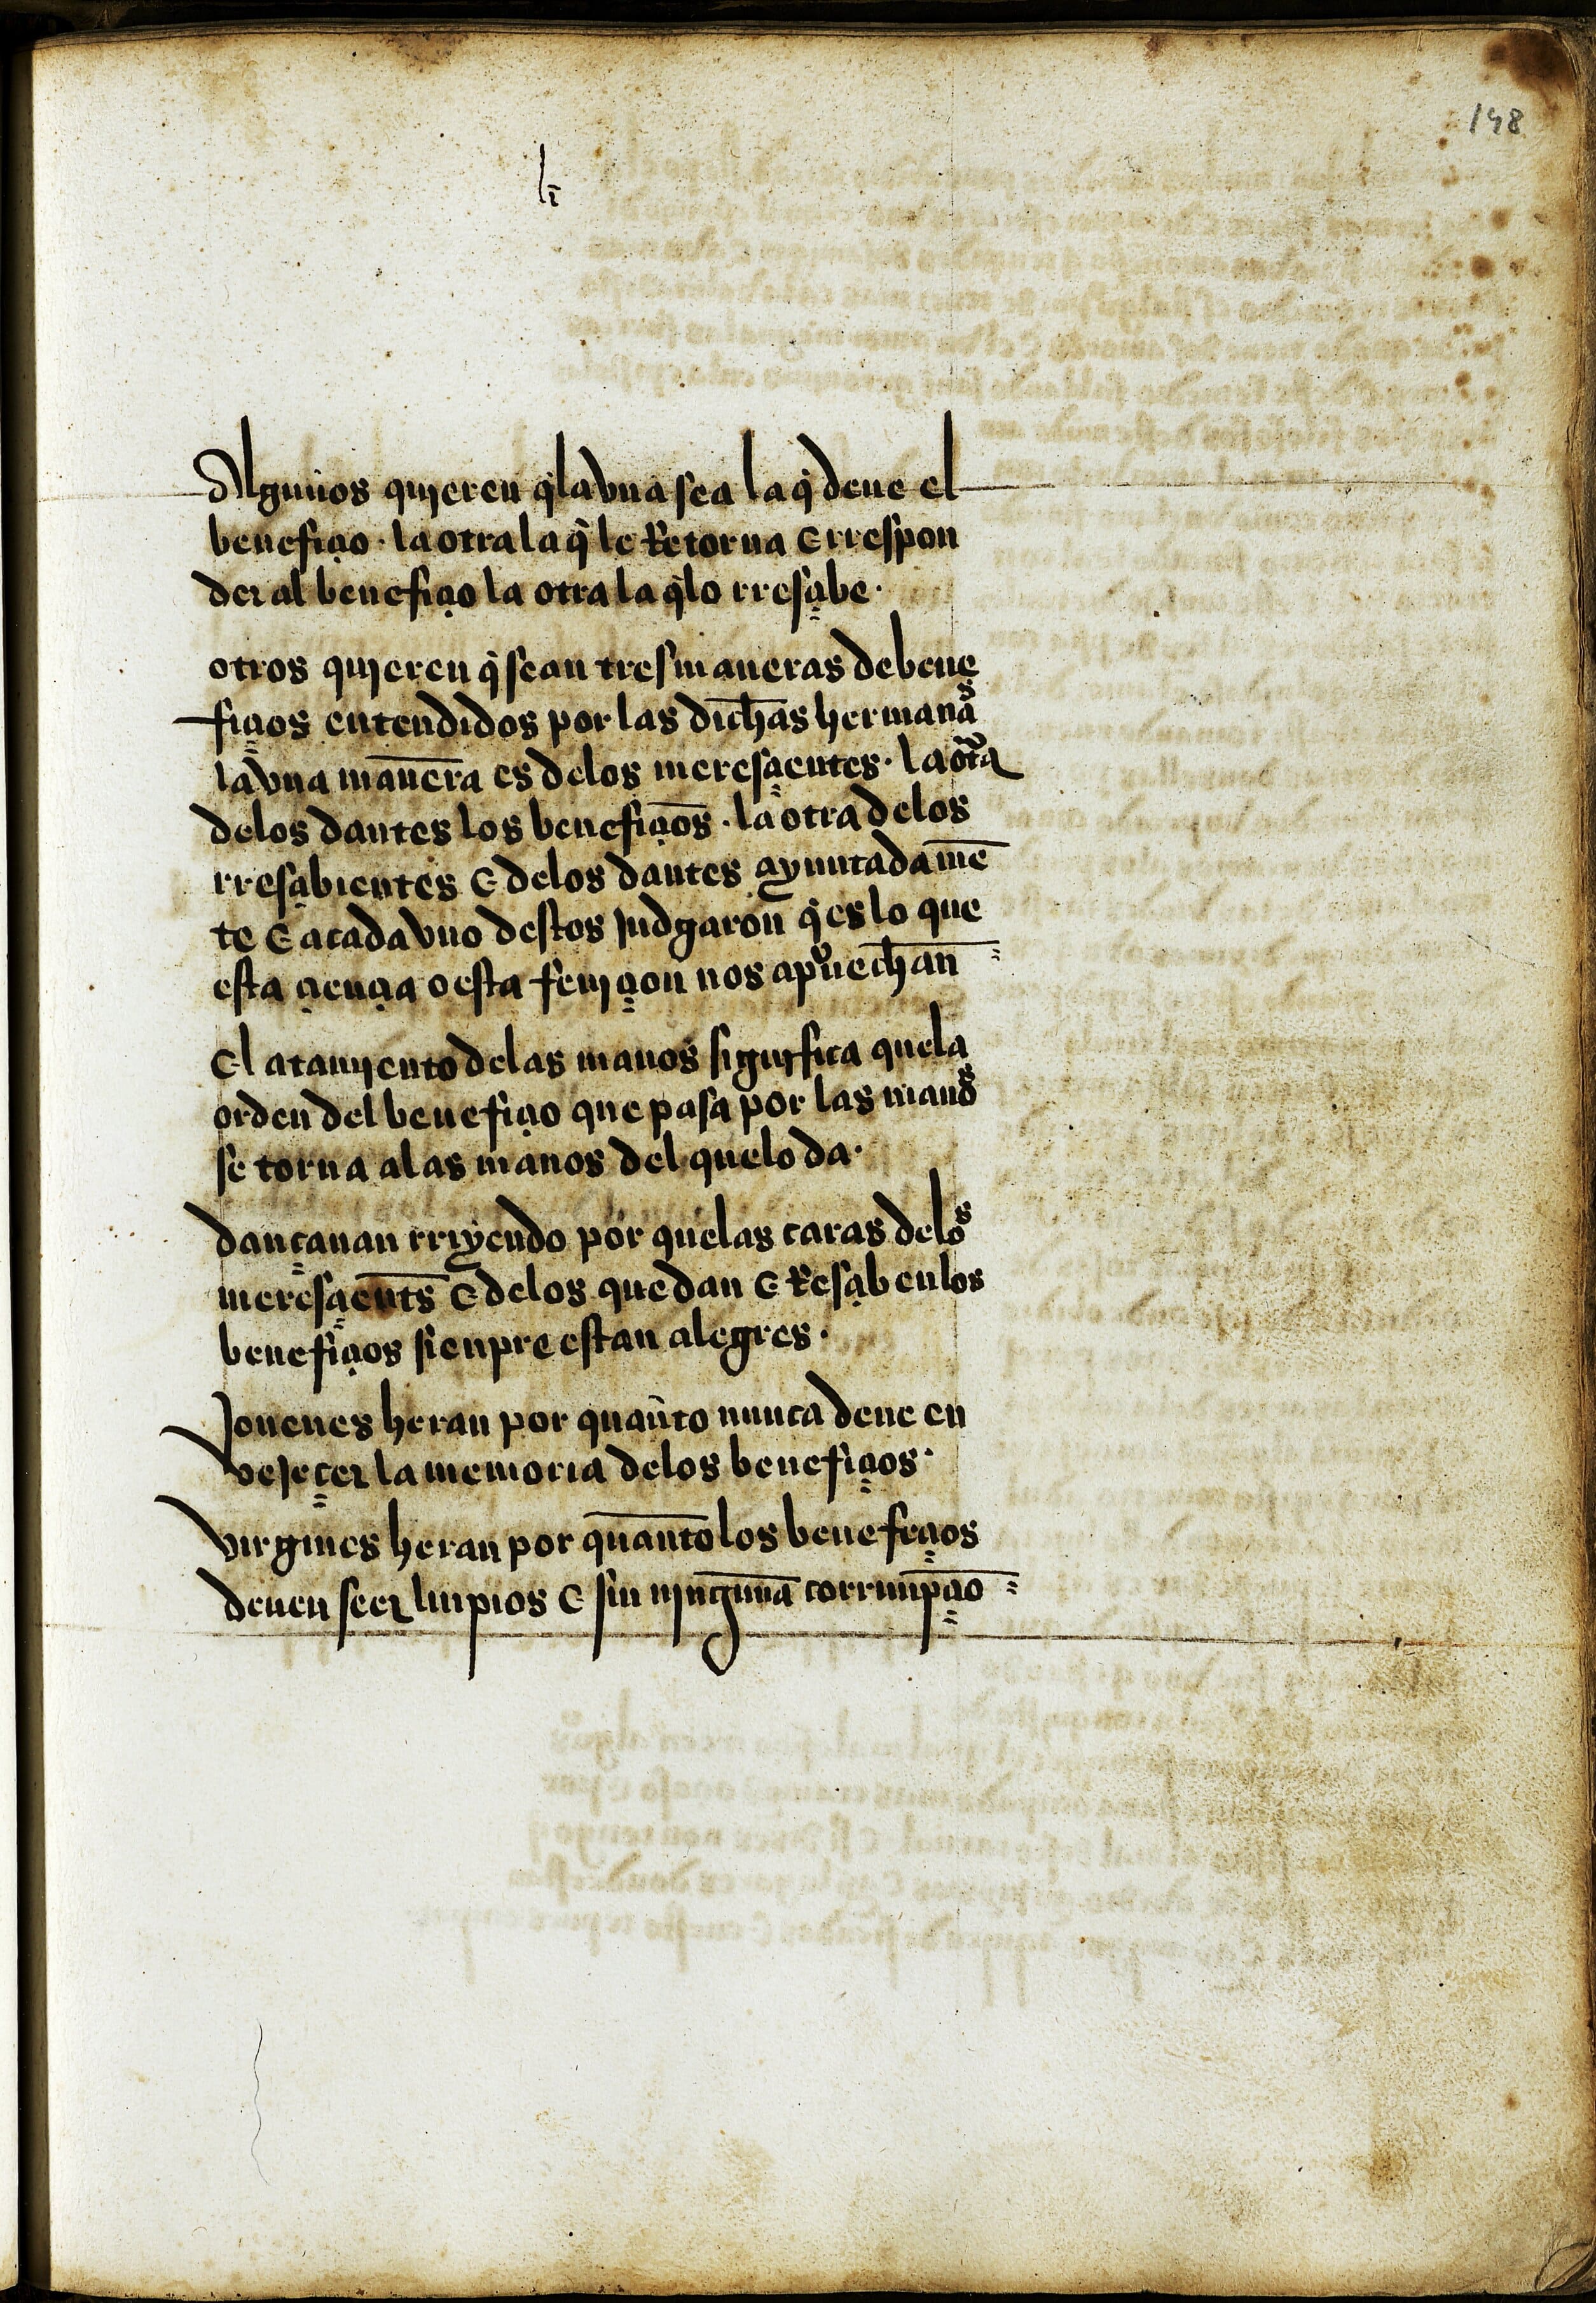 148
Algunos quieren q̃ la vna sea la q̃ deue el
benefiçio · la otra la q̃ le Retorna e rrespon
der al benefiçio la otra la q̃ lo rresçibe ·
otros quieren q̃ sean tres maneras de bene
fiçios entendidos por las dichas hermanas
la vna manera es delos meresçientes · la otra
delos dantes los benefiçios · la otra delos
rresçibientes e delos dantes ayuntadamē
te e a cada vno destos judgaron q̃ es lo que
esta çiençia o esta feniçion nos apuechan
El atamiento delas manos significa que la
orden del benefiçio que pasa por las manos
se torna a las manos del que lo da ·
dançauan rriyendo por que las caras delos
meresçients e delos que dan e Resçiben los
benefiçios sienpre estan alegres ·
Jouenes heran por quanto nunca deue en
vejeçer la memoria delos benefiçios ·
virgines heran por quanto los benefeçios
deuen seer linpios e sin ninguna corrupçio